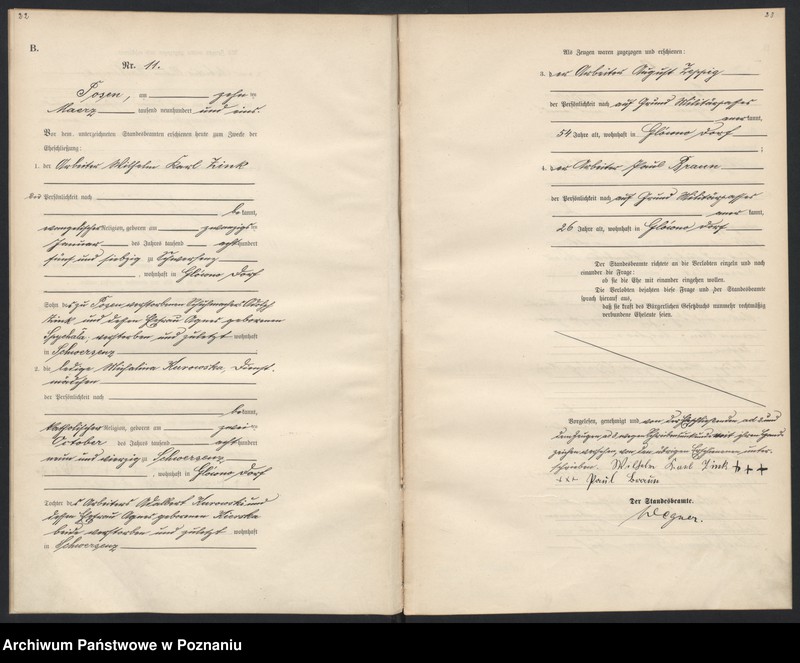 22
B.
Nr. 11.
Posen, am zehn ten
Maerz tausend neunhundert und eins.
Vor dem unterzeichneten Standesbeamten erschienen heute zum Zwecke der
Eheschließung:
1. der Arbeiter Wilhelm Karl Zink
der Persönlichkeit nach
be kannt,
evangelischer Religion, geboren am zwanzigsten
Januar des Jahres tausend acht hundert
fünf und siebzig zu Schwersenz
, wohnhaft in Glowno Dorf
Sohn des zu Posen verstorbenen Schuhmachers Adolph
Zink und dessen Ehefrau Agnes geborenen
verstorben und zuletzt wohnhaft
in Schwersenz
2. die ledige Michalina Kurowska, Dienst-
mädchen
der Persönlichkeit nach
be kannt,
katholischer Religion, geboren am zwei ten
October des Jahres tausend acht hundert
neun und vierzig zu Schwersenz
, wohnhaft in Glowno Dorf
Tochter des Arbeiters Adalbert Kurowski und
dessen Ehefrau Agnes geborenen
beide verstorben und zuletzt wohnhaft
in Schwersenz
23
Als Zeugen waren zugezogen und erschienen:
3. der Arbeiter August
der Persönlichkeit nach auf Grund Militärpasses
aner kannt,
54 Jahre alt, wohnhaft in Glowno Dorf
;
4. der Arbeiter Paul Braun
der Persönlichkeit nach auf Grund Militärpasses
aner kannt,
26 Jahre alt, wohnhaft in Glowno Dorf
Der Standesbeamte richtete an die Verlobten einzeln und nach
einander die Frage:
ob sie die Ehe mit einander eingehen wollen.
Die Verlobten bejahten diese Frage und der Standesbeamte
sprach hierauf aus,
daß sie kraft des Bürgerlichen Gesetzbuchs nunmehr rechtmäßig
verbundene Eheleute seien.
Vorgelesen, genehmigt und von der Eheschließenden ad 2 und
dem Zeugen ad 3 wegen Schreibensunkunde mit ihren Hand-
zeichen versehen, von den übrigen Erschienenen unter-
schrieben. Wilhelm Karl Zink +++
+++ Paul Braun
Der Standesbeamte.
Wegner.
Archiwum Państwowe w Poznaniu